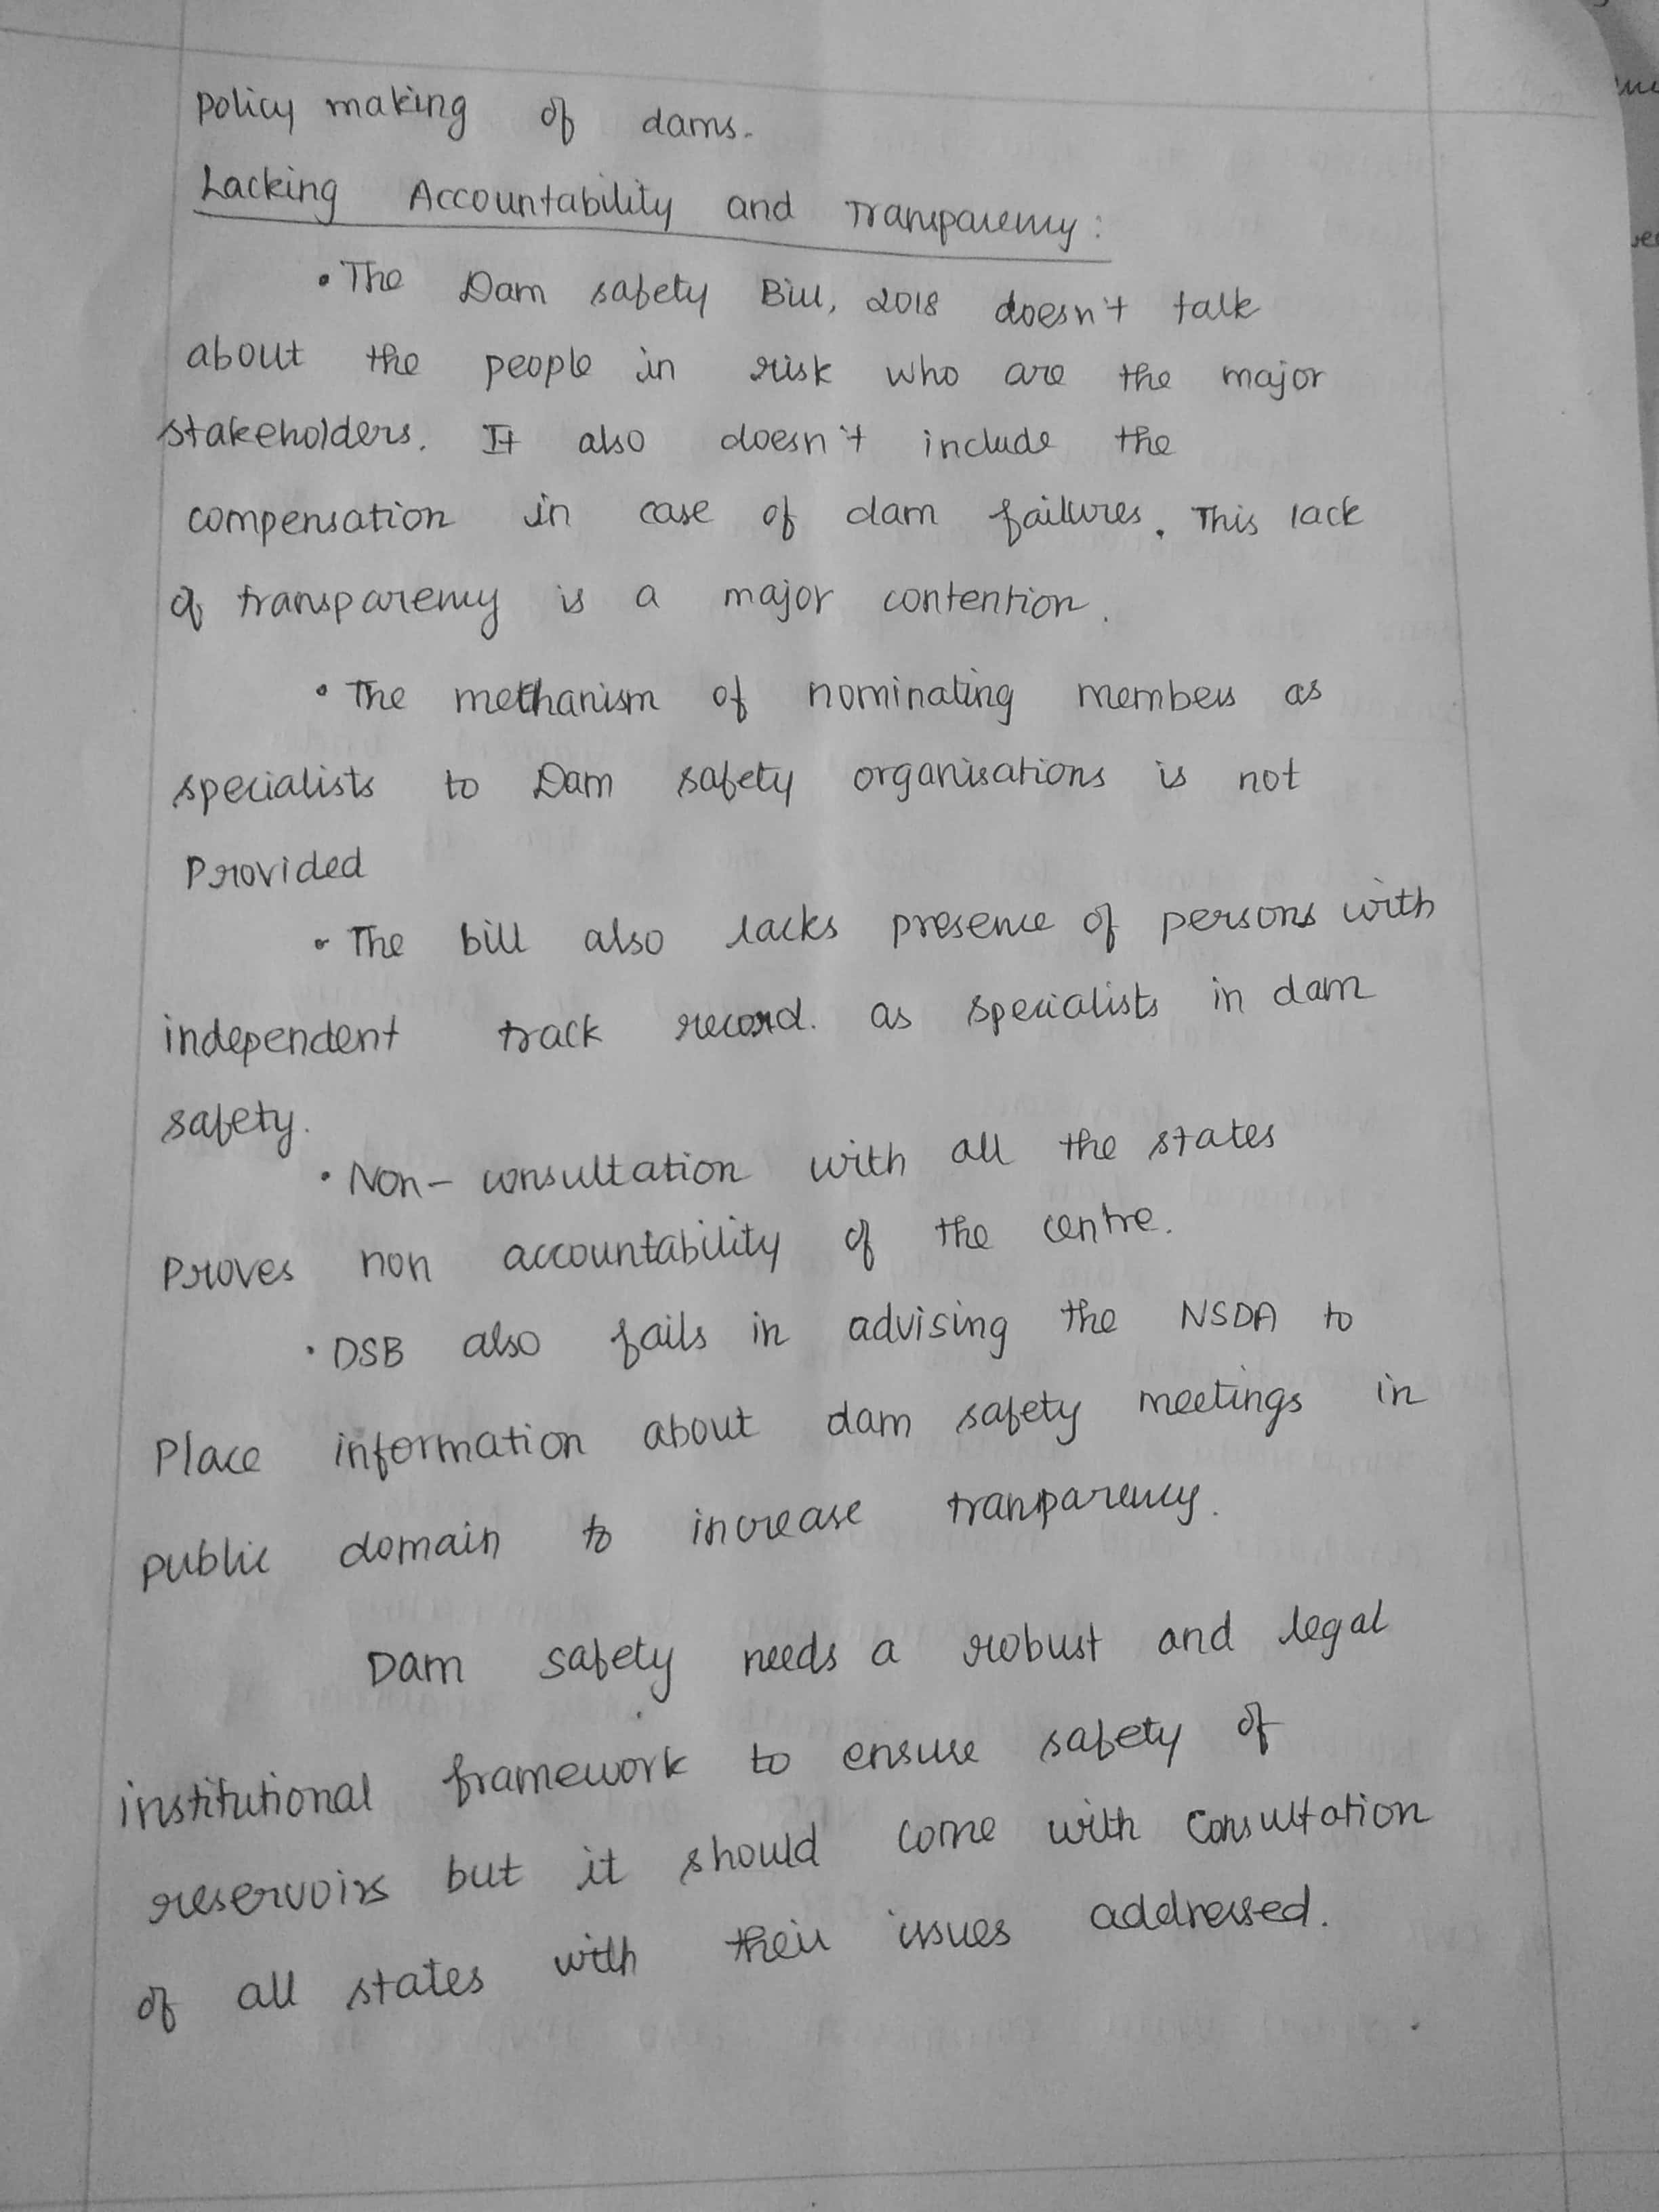 policy making of dams.
Lacking Accountability and Transparency:
• The Dam safety Bill, 2018 doesn't talk
about the people in risk who are the major
stakeholders. It also doesn't include the
compensation in case of dam failures. This lack
of transparency is a major contention.
• The mechanism of nominating members as
specialists to Dam safety organisations is not
Provided
• The bill also lacks presence of persons with
independent track record. as specialists in dam
safety.
• Non- consultation with all the states
Proves non accountability of the centre.
• DSB also fails in advising the NSDA to
Place information about dam safety meetings in
public domain to increase tranparency.
Dam safety needs a robust and legal
institutional framework to ensure safety of
reservoirs but it should come with consultation
of all states with their issues addressed.